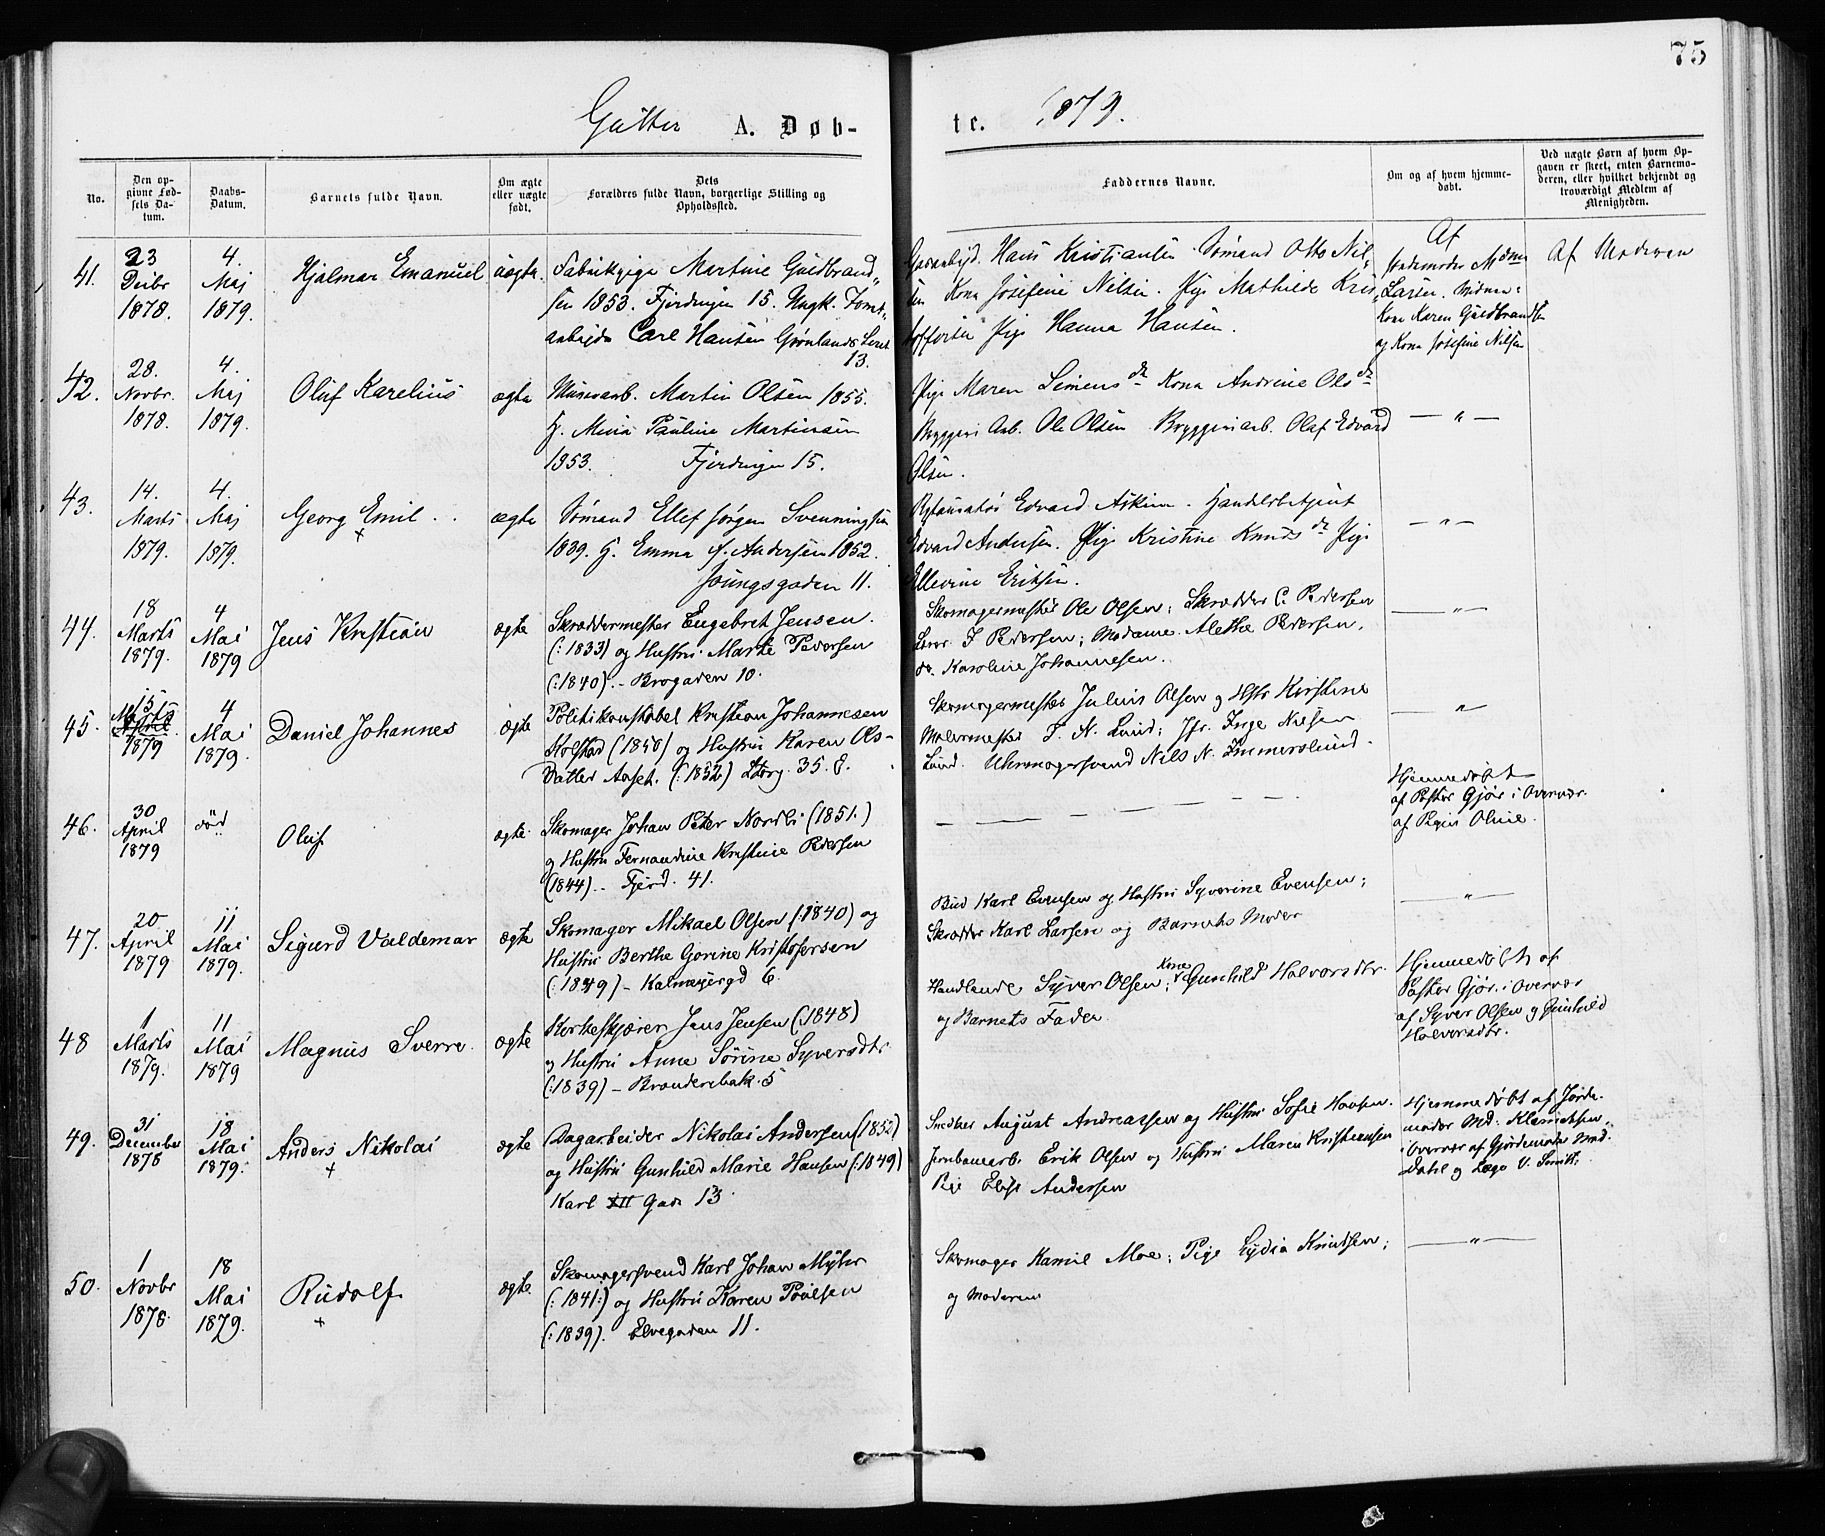 75
Gutter A. Døb-
te. 1879.
No.
Den op-
givne Fød-
sels Da-
tum.
Daabs-
Datum.
Barnets fulde Navn.
Om ægte
eller uægte
født.
Dets
Forældres fulde Navn, borgerlige Stilling og
Opholdssted.
Faddernes Navne.
Om og af hvem hjemme-
døbt.
Ved uægte Børn af hvem Op-
gaven er skeet, enten Barnemo-
deren, eller hvilket bekjendt og
troværdigt Medlem af
Menigheden.
41.
23
Decbr
1878.
4.
Maj
1879.
Hjalmar Emanuel
uægte.
Fabrikpige Martine Guldbrand-
sen 1853. Fjerdingen 15. Ungk. Tomt-
arbejder Carl Hansen Grønlands Leret
13.
Hans Kristiansen. Sømand Otto Nil-
sen Kona Josefine Nilsen. Pige Mathilde Kris-
toffersen Pige Hanna Hansen.
Af
Jordemoder Mdme
Larsen. Vidner:
Kone Karen Guldbrandsen
og Kona Josefine Nilsen
Af Moderen
42.
28.
Novbr.
1878.
4.
Maj
1879.
Oluf Karelius
ægte
Murerarb. Martin Olsen 1855.
H. Mina Pauline Martinsen
1853. Fjerdingen 15.
Pige Maren Simensdr Kona Andrine Olsdr
Bryggeri Arb. Ole Olsen Bryggeriarb. Olaf Edvard
Olsen.
— " —
43.
14.
Marts
1879.
4.
Maj
1879.
Georg Emil
+
ægte
Sømand Ellef Jørgen Svenningsen
1839. H. Emma f. Andersen 1852.
Youngsgaden 11.
Restauratør Edvard Askim. Handelsbetjent
Edvard Andersen. Pige Kristine Knudsdr Pige
Ellevine Eriksen.
— " —
44.
18
Marts
1879.
4
Mai
1879
Jens Kristian
ægte
Skræddermester Engebret Jensen.
(:1833) og Hustru Marte Pedersen
(:1840). - Brogaden 10.
Skomagermester Ole Olsen; Skrædder C. Pedersen
Lærer J Pedersen; Madame Alethe Pedersen,
do. Karoline Johannesen.
— " —
45.
15
1879
4
Mai
1879.
Daniel Johannes
ægte
Politikonstabel Kristian Johannesen
Kolstad (1850) og Hustru Karen Ols-
datter Aaset. (:1852) Storg. 35. J.
Skomagermester Julius Olsen og Hstr Kirstine
Malermester T. N. Lund; Jfr. Inge Nilsen
Lund. Uhrmagersvend Nils N. Immerslund.
— " —
46.
30
April
1879
død
Oluf
ægte.
Skomager Johan Peter Nordli (1851.)
og Hustru Fernandine Kristine Pedersen
(1844).. Fjerd. 41.
— — — — — — —
Hjemmedøbt
af Pastor Gjør i Overvær
af Pigen Oline.
47.
20
April
1879
11
Mai
1879.
Sigurd Valdemar
ægte
Skomager Mikael Olsen (:1840) og
Hustru Berthe Gorine Kristofersen
(:1849) - Kalmeyergd 6.
Bud Karl Evensen og Hustru Syverine Evensen;
Skrædder Karl Larsen og Barnets Moder
— " —
48
1
Marts
1879.
11
Mai
1879
Magnus Sverre.
ægte
Kirkeskjærer Jens Jensen (:1848)
og Hustru Anne Sørine Syversdtr
(:1839) - Brænderibak. 5
Handlende Syver Olsen; Kone Gunhild Halvorsdtr.
og Barnets Fader.
Hjemmedøbt af
Pastor Gjør. i Overvær
af Syver Olsen og Gunhild
Halvorsdtr.
49.
31
December
1878
18
Mai
1879.
Anders Nikolai
+
ægte
Dagarbeider Nikolai Andersen (1852)
og Hustru Gunhild Marie Hansen (:1849)
Karl XII Gade 13.
Smedker August Andreassen og Hustru Sofie Hansen.
Jernbanearb. Erik Olsen og Hustru Maren Kristiansen
Pige Elise Andersen
Hjemmedøbt af Jorde-
moder Md. Klemetsen
i Overvær af Gjordemoder Mad.
Dahl og Læge V. Smith.
50.
1
Novbr
1878.
18
Mai
1879.
Rudolf
+
ægte
Skomagersvend Karl Johan Myhr
(:1841:) og Hustru Karen Poulsen
(:1839). Elvegaden 11.
Skomager Kamil Moe; Pige Lydia Knutsen;
og Moderen
— " —